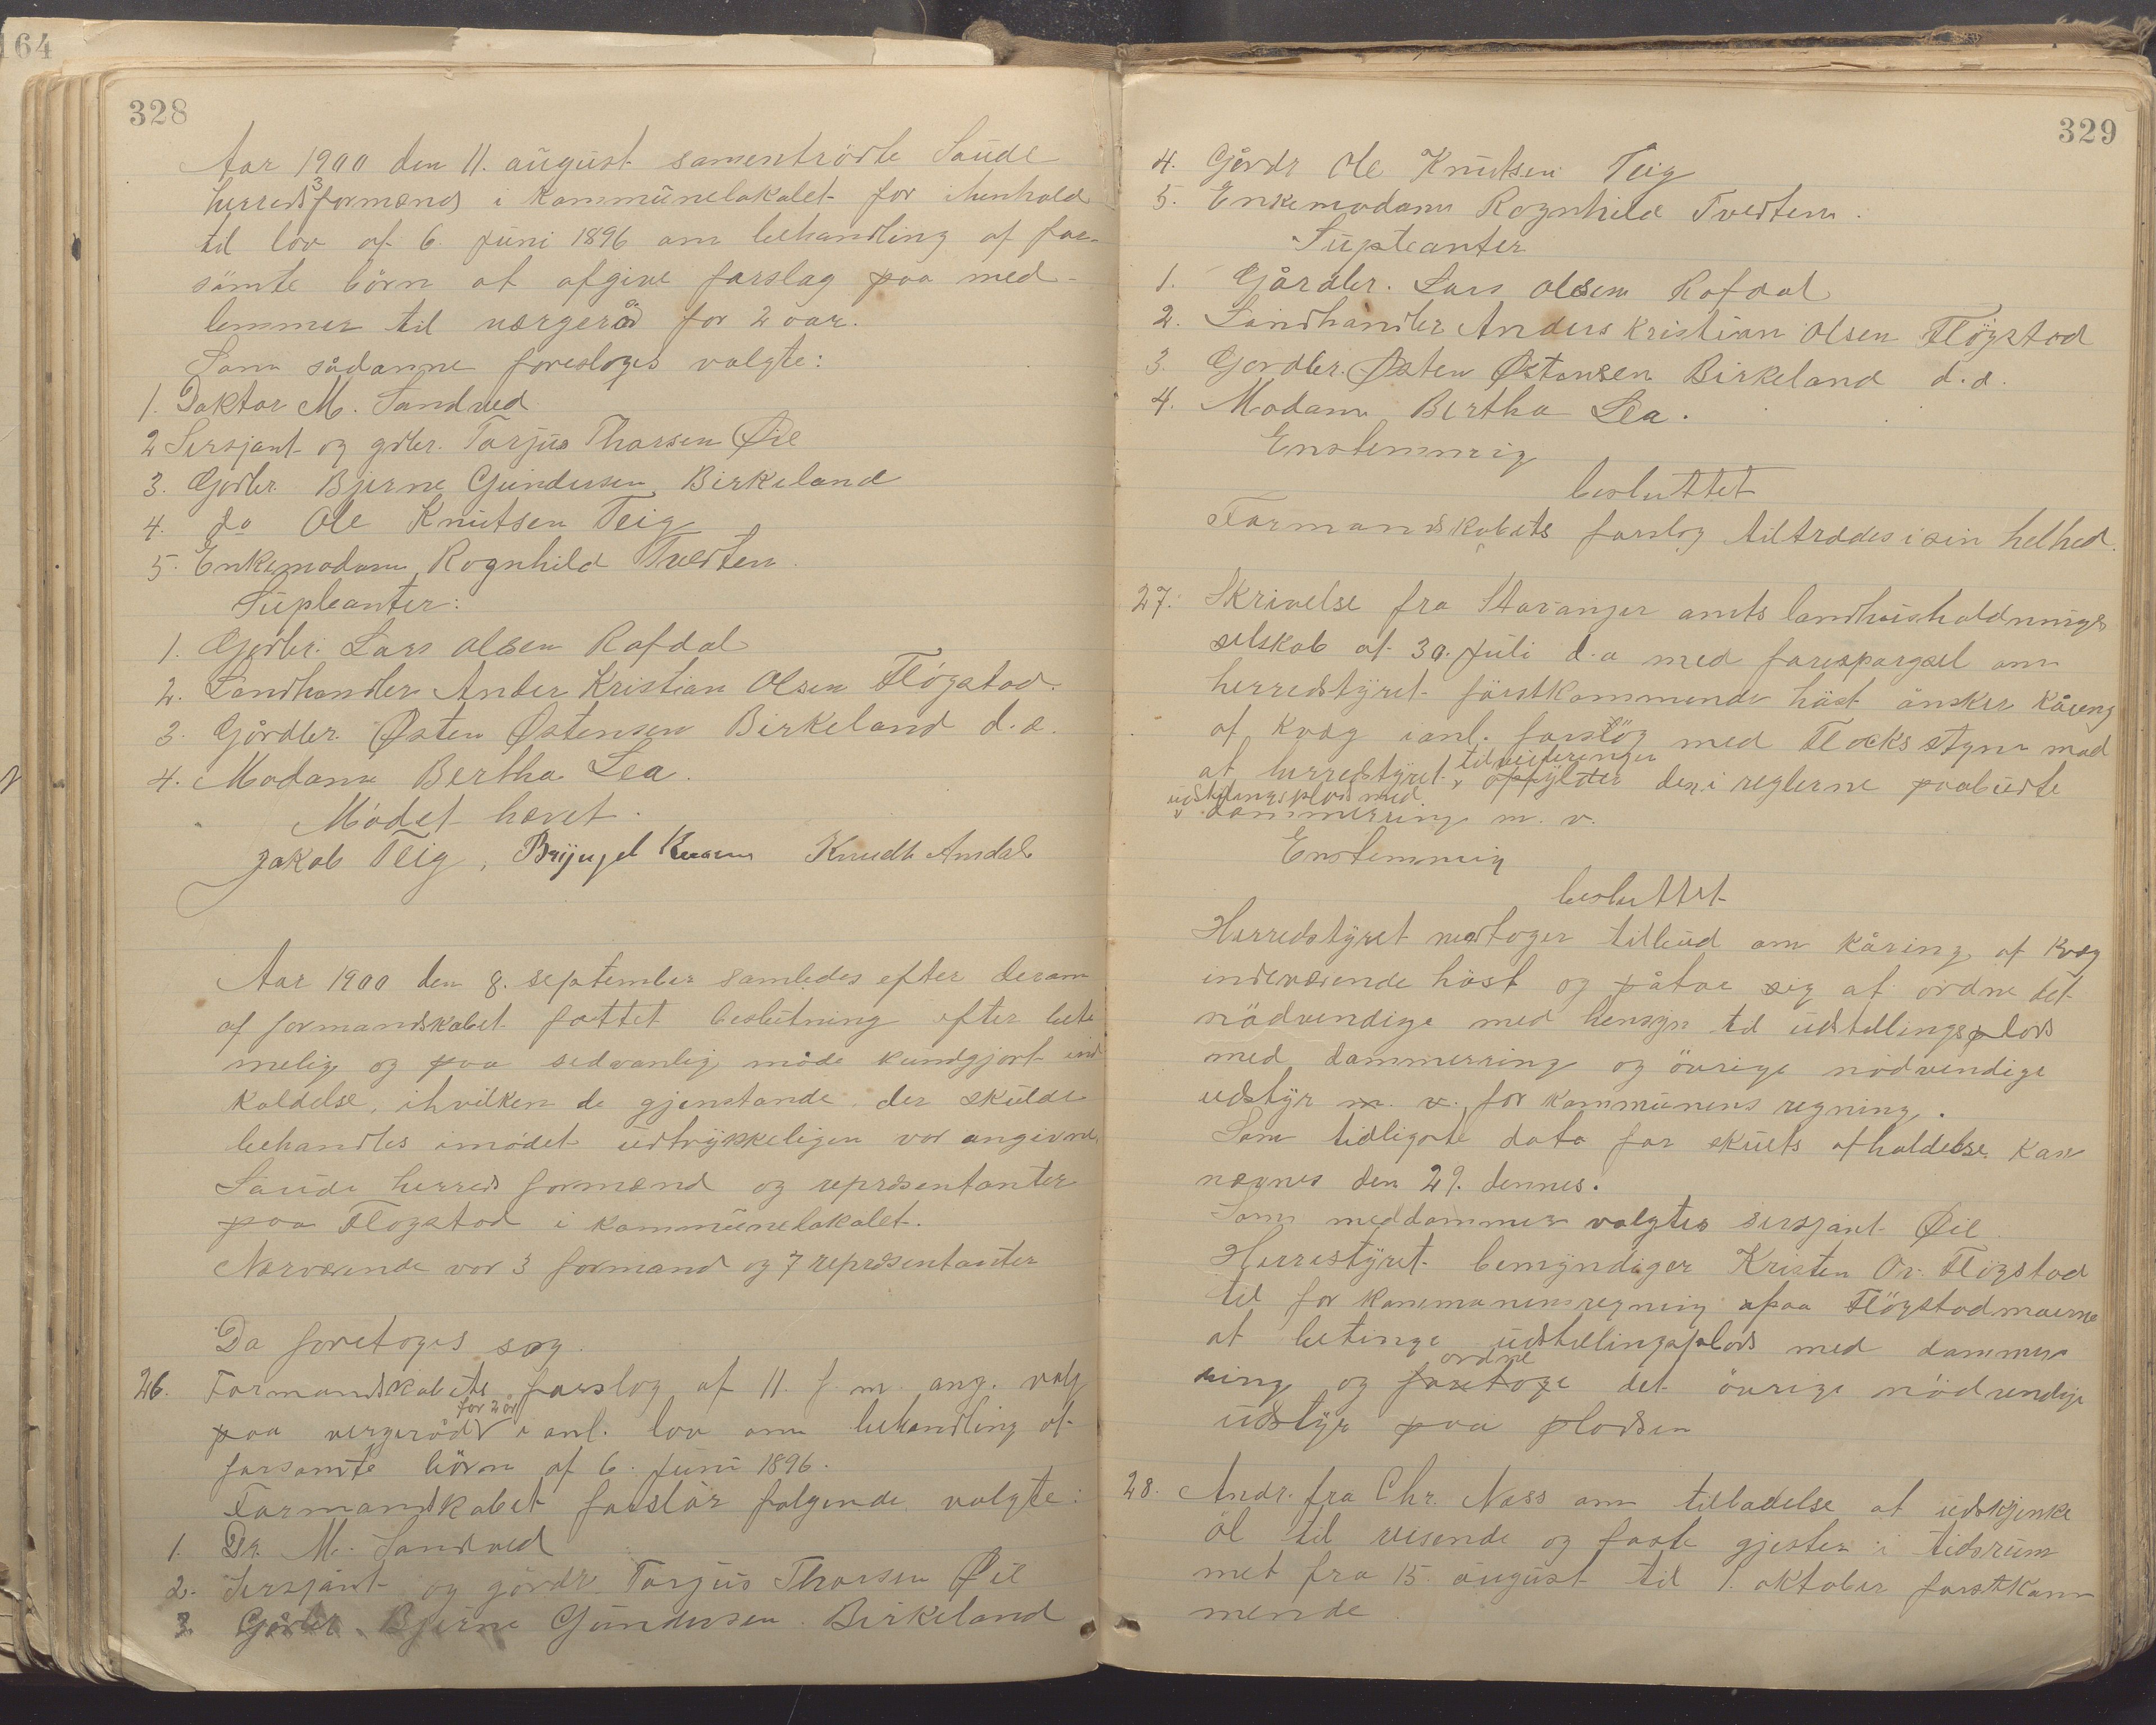 164
328
Aar 1900 den 11. august samentrådte Saude
herreds 3 formænd i kommunelokalet for ihenhold
til lov af 6. juni 1896 om behandling af for-
sömte börn at afgive forslag paa med-
lemmer til værgeråd for 2 aar.
Som sådanne foresloges valgte:
1. Doktor M. Sandved
2 Sersjant og gdbr. Torjus Thorsen Øie
3. Gdbr. Bjerne Gundersen Birkeland
4. do Ole Knutsen Teig
5. Enkemadam Rognhild Tveiten
Supleanter:
1. Gdbr. Lars Olsen Rafdal
2. Landhandler Ander Kristian Olsen Flögstad.
3. Gårdbr. Østen Østensen Birkeland d.æ.
4. Madam Bertha Lea.
Mödet hævet.
Jakob Teig, Knudt Amdal
Aar 1900 den 8. september samledes efter derom
af formandskabet fattet beslutning efter bete
melig og paa sedvanlig måde kundgjort ind
kaldelse, ihvilken de gjenstande der skulde
behandles imödet udtrykkeligen var angivne,
Saude herreds formænd og repræsentanter
paa Flogstad i kommunelokalet.
Nærværende var 3 formænd og 7 repræsentanter
Da foretoges sag.
26. Formandskabets forslag af 11. f. m. ang. valg
for 2 år
paa vergeråd i anl. lov om behandling af
forsömte börn af 6. juni 1896.
Formandskabet foreslår fölgende valgte:
1. Dr. M. Sandved
2. Sersjant og gårdr. Torjus Thorsen Øie
3. Gårdbr. Bjerne Gundersen Birkeland
329
4. Gårdr Ole Knutsen Teig
5. Enkemadam Rognhild Tveiten.
Supleanter
1. Gårdbr. Lars Olesen Rafdal
2. Landhandler Anders Kristian Olsen Flögstad
3. Gardbr. Østen Østensen Birkeland d.æ.
4. Madam Bertha Lea.
Enstemmig
besluttet
Formandskabets forslag tiltrædes i sin helhed.
27. Skrivelse fra Stavanger amts landhusholdnings
selskab af 30. juli d.a med forespörgsel om
herredstyret förstkommende höst önsker kåring
af kvæg i anl. forslög med Flocks styre mod
tilveiebringer
at herredstyret opfylder den i reglerne paabudte
udstillingsplads med
dommerring m. v.
Enstemmig
besluttet
Herredstyret modtager tilbud om kåring af kvæg
indeværende höst og påtar sig at ordne det
nödvendige med hensyn til udstillingsplads
med dommerring og övrige nödvendige
udstyr m. v. for kommunens regning.
Som tidligste dato for skuets afholdelse kan
nævnes den 29. dennes.
Som meddommer valgtes sersjant Øie.
Herrestyret bemyndiger Kristen Or. Flögstad
til for kommunens regning paa Flögstadmoerne
at betinge udstillingsplads med dommer
ordne
ring og foretage det övrige nödvendige
udstyr paa pladsen
28. Andr. fra Chr. Næss om tilladelse at udskjenke
öl til reisende og faste gjester i tidsrum
met fra 15. august til 1. oktober förstkom
mende.